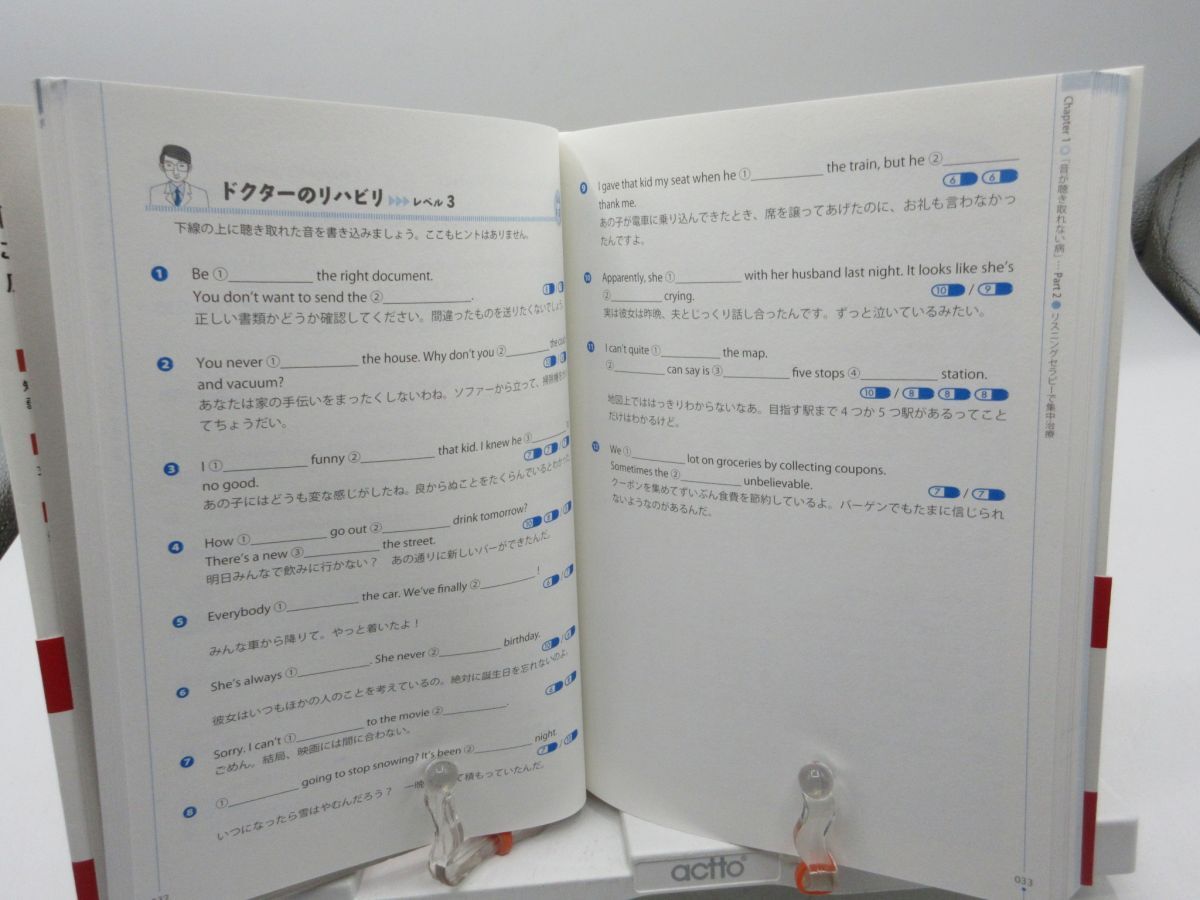 ドクターのリハビリ レベル 3
下線の上に聴き取れた音を書き込みましょう。ここもヒントはありません。
1 Be ①__________ the right document.
You don't want to send the ②__________.
正しい書類かどうか確認してください。間違ったものを送りたくないでしょう。
2 You never ①__________ the house. Why don't you ②__________
and vacuum?
あなたは家の手伝いをまったくしないわね。ソファーから立って、掃除機を
てちょうだい。
3 I ①__________ funny ②__________ that kid. I knew he ③__________
no good.
あの子にはどうも変な感じがしたね。良からぬことをたくらんでいるとわかった
4 How ①__________ go out ②__________ drink tomorrow?
There's a new ③__________ the street.
明日みんなで飲みに行かない? あの通りに新しいバーができたんだ。
5 Everybody ①__________ the car. We've finally ②__________!
みんな車から降りて。やっと着いたよ!
6 She's always ①__________. She never ②__________ birthday.
彼女はいつもほかの人のことを考えているの。絶対に誕生日を忘れないのよ。
7 Sorry. I can't ①__________ to the movie ②__________.
ごめん。結局、映画には間に合わない。
8 ①__________ going to stop snowing? It's been ②__________ night.
いつになったら雪はやむんだろう? 一晩 て積もっていたんだ。
9 I gave that kid my seat when he ①__________ the train, but he ②__________
thank me.
6 6
あの子が電車に乗り込んできたとき、席を譲ってあげたのに、お礼も言わなかっ
たんですよ。
10 Apparently, she ①__________ with her husband last night. It looks like she's
②__________ crying.
10 / 9
実は彼女は昨晩、夫とじっくり話し合ったんです。ずっと泣いているみたい。
11 I can't quite ①__________ the map.
②__________ can say is ③__________ five stops ④__________ station.
10 / 8 8 8
地図上でははっきりわからないなあ。目指す駅まで4つか5つ駅があるってこと
だけはわかるけど。
12 We ①__________ lot on groceries by collecting coupons.
Sometimes the ②__________ unbelievable.
7 / 7
クーポンを集めてずいぶん食費を節約しているよ。バーゲンでもたまに信じられ
ないようなのがあるんだ。
Chapter 1 「音が聴き取れない病」… Part 2 リスニングセラピーで集中治療
033
actto